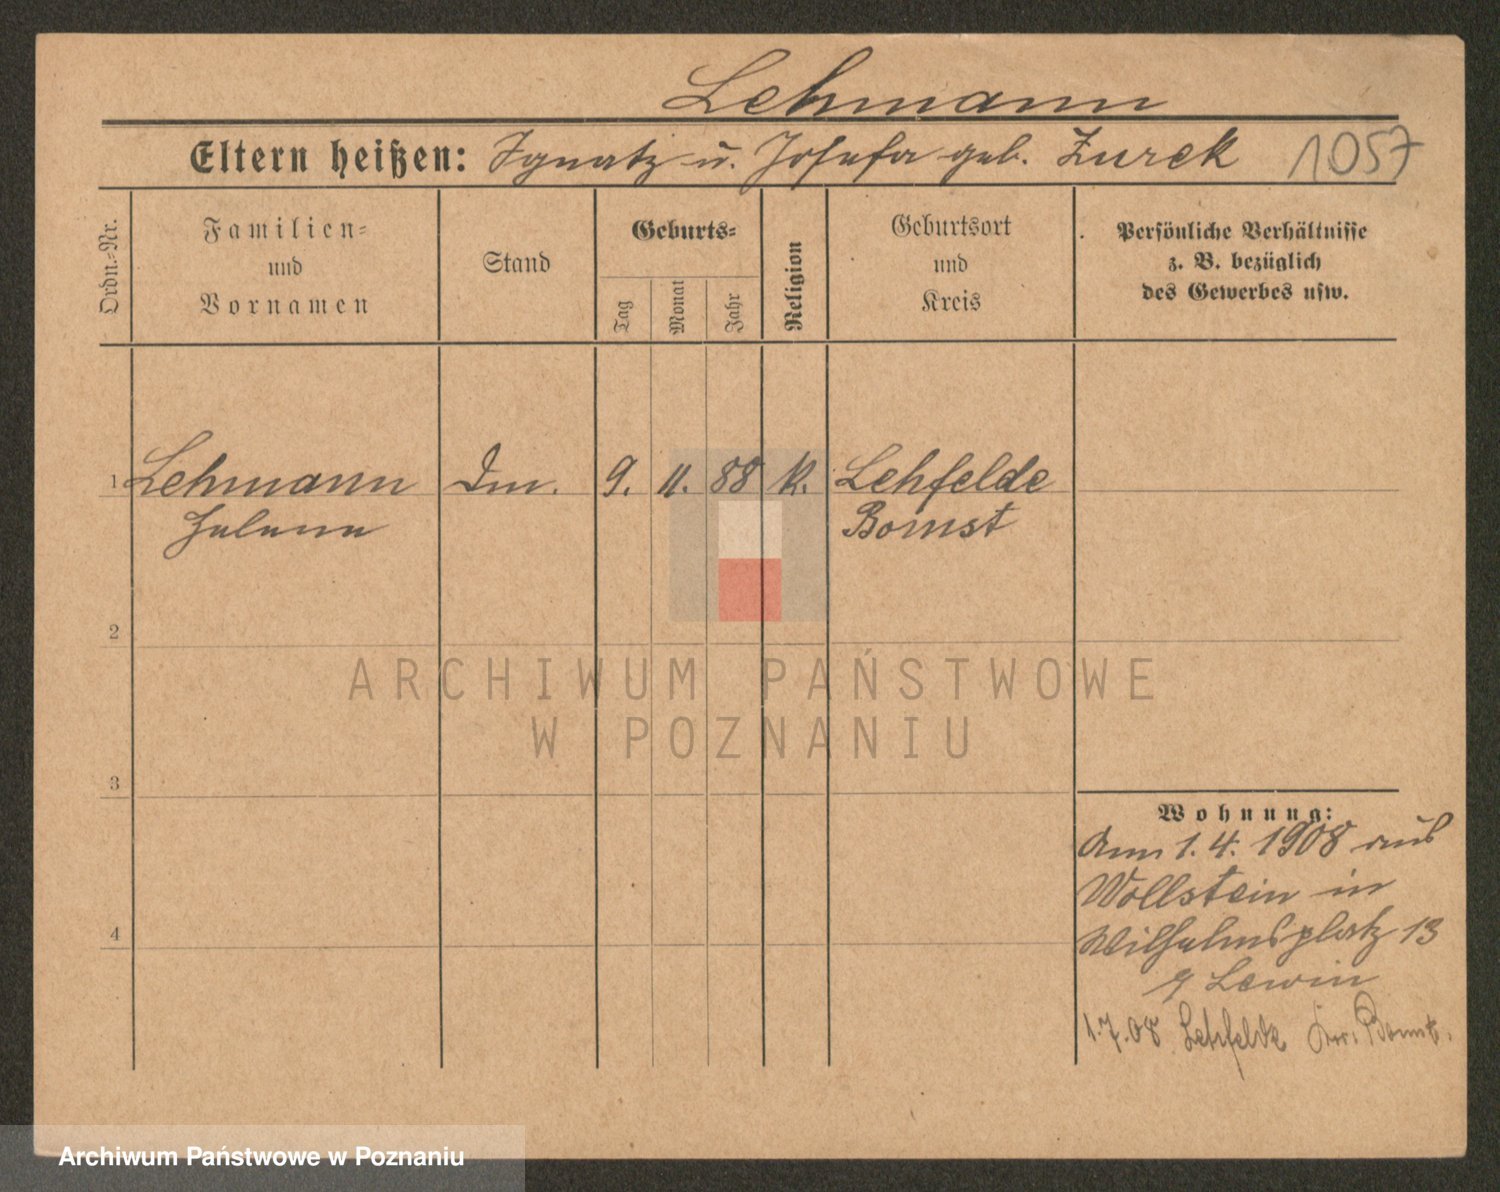 Lehmann
Eltern heißen: Ignatz u. Josefa geb. Zurek 1057
Ordn.-Nr.
Familien-
und
Vornamen
Stand
Geburts-
Tag
Monat
Jahr
Religion
Geburtsort
und
Kreis
Persönliche Verhältnisse
z. B. bezüglich
des Gewerbes usw.
1 Lehmann 9. 11. 88 k. Lehfelde
Helene Bomst
2
3
4
Wohnung:
Am 1.4.1908 aus
Wollstein in
Wilhelmsplatz 13
Lewin
1.7.08 Lehfelde Kr. Bomst.
ARCHIWUM PAŃSTWOWE
W POZNANIU
Archiwum Państwowe w Poznaniu